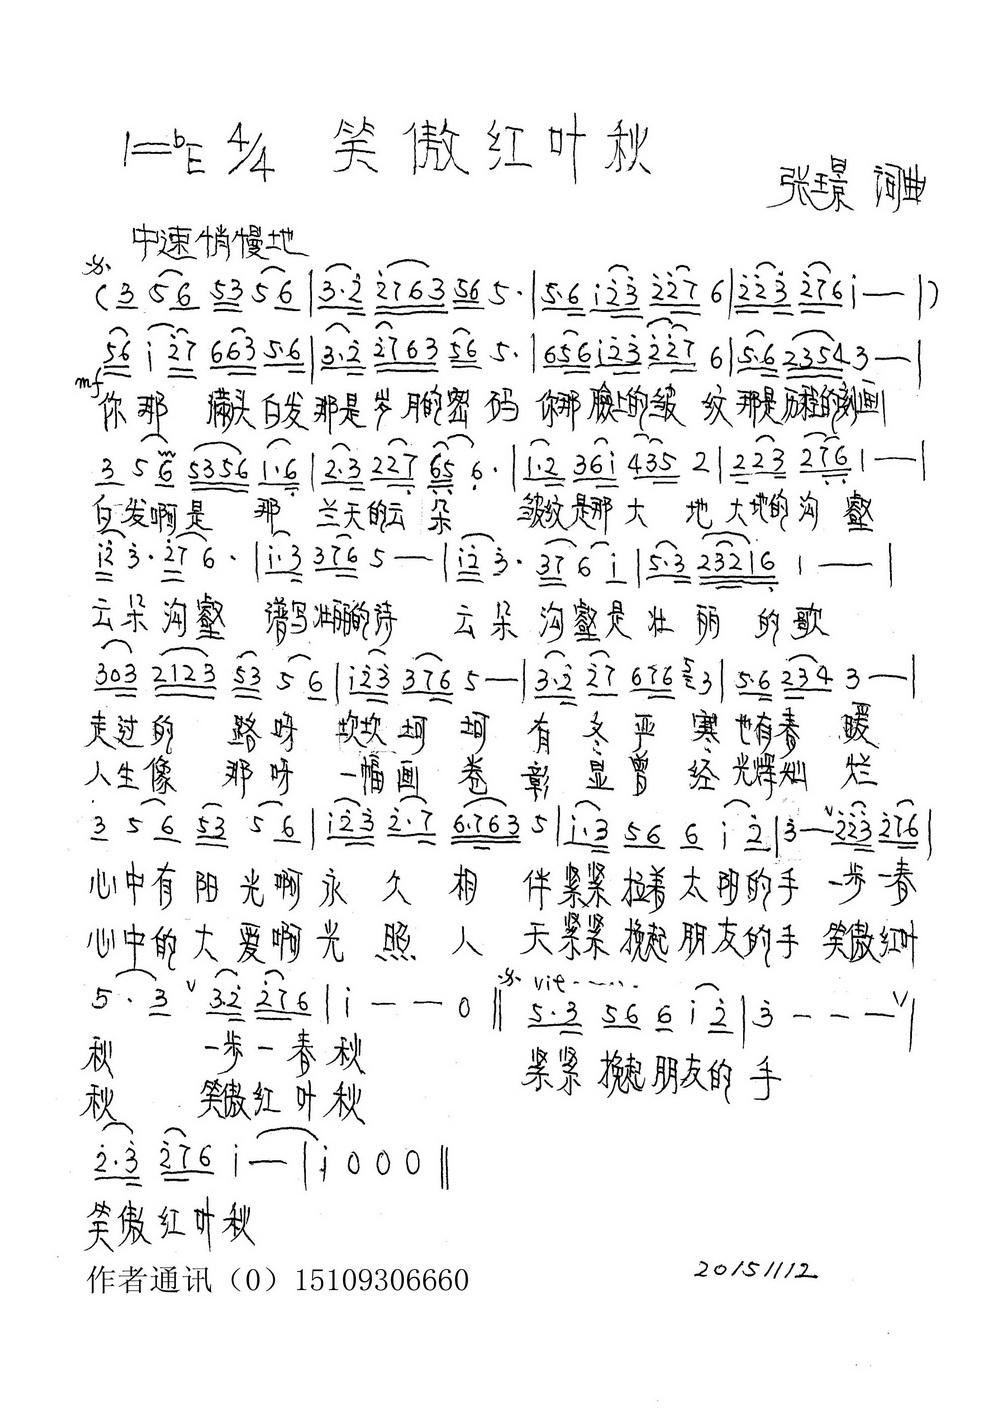 1=ᵇE 4/4 笑傲红叶秋
张璟 词曲
中速悄慢地
(3 56 53 56 | 3·2 2763 56 5· | 5·6 i23 227 6 | 223 276 i — | )
56 i 27 663 5·6 | 3·2 2763 56 5· | 656 i23 227 6 | 5·6 2354 3 — |
mf 你那 满头白发那是岁月的密码 你那臉上的皱纹那是历程的刻画
3 5 6 5356 1·6 | 2·3 227 65 6· | 1·2 36i 435 2 | 223 276 1 — |
白发啊是 那 兰天的云朵 皱纹是那大 地大地的沟壑
i2 3· 27 6· | i·3 376 5 — | i2 3· 37 6 i | 5·3 23216 1 — |
云朵沟壑 谱写壮丽的诗 云朵沟壑是壮丽的歌
303 2123 53 5 6 | i23 376 5 — | 3·2 27 676 3 | 5·6 234 3 — |
走过的 路呀 坎坎坷坷 有冬严寒也有春暖
人生像 那呀 一幅画卷 彰显曾经光辉灿烂
3 5 6 53 5 6 | i23 2·7 6·763 5 | i·3 56 6 i 2 | 3 — ∨223 276 |
心中有阳光啊永久相 伴紧紧拉着太阳的手 一步一春
心中的大爱啊光照人 天紧紧挽起朋友的手 笑傲红叶
5· 3 ∨ 3·2 276 | i — — 0 ‖ 5·3 56 6 i 2 | 3 — — — ∨ |
vit······
秋 一步一春秋 紧紧挽起朋友的手
秋 笑傲红叶秋
2·3 276 i — | i 0 0 0 ‖
笑傲红叶秋
作者通讯（0）15109306660
20151112